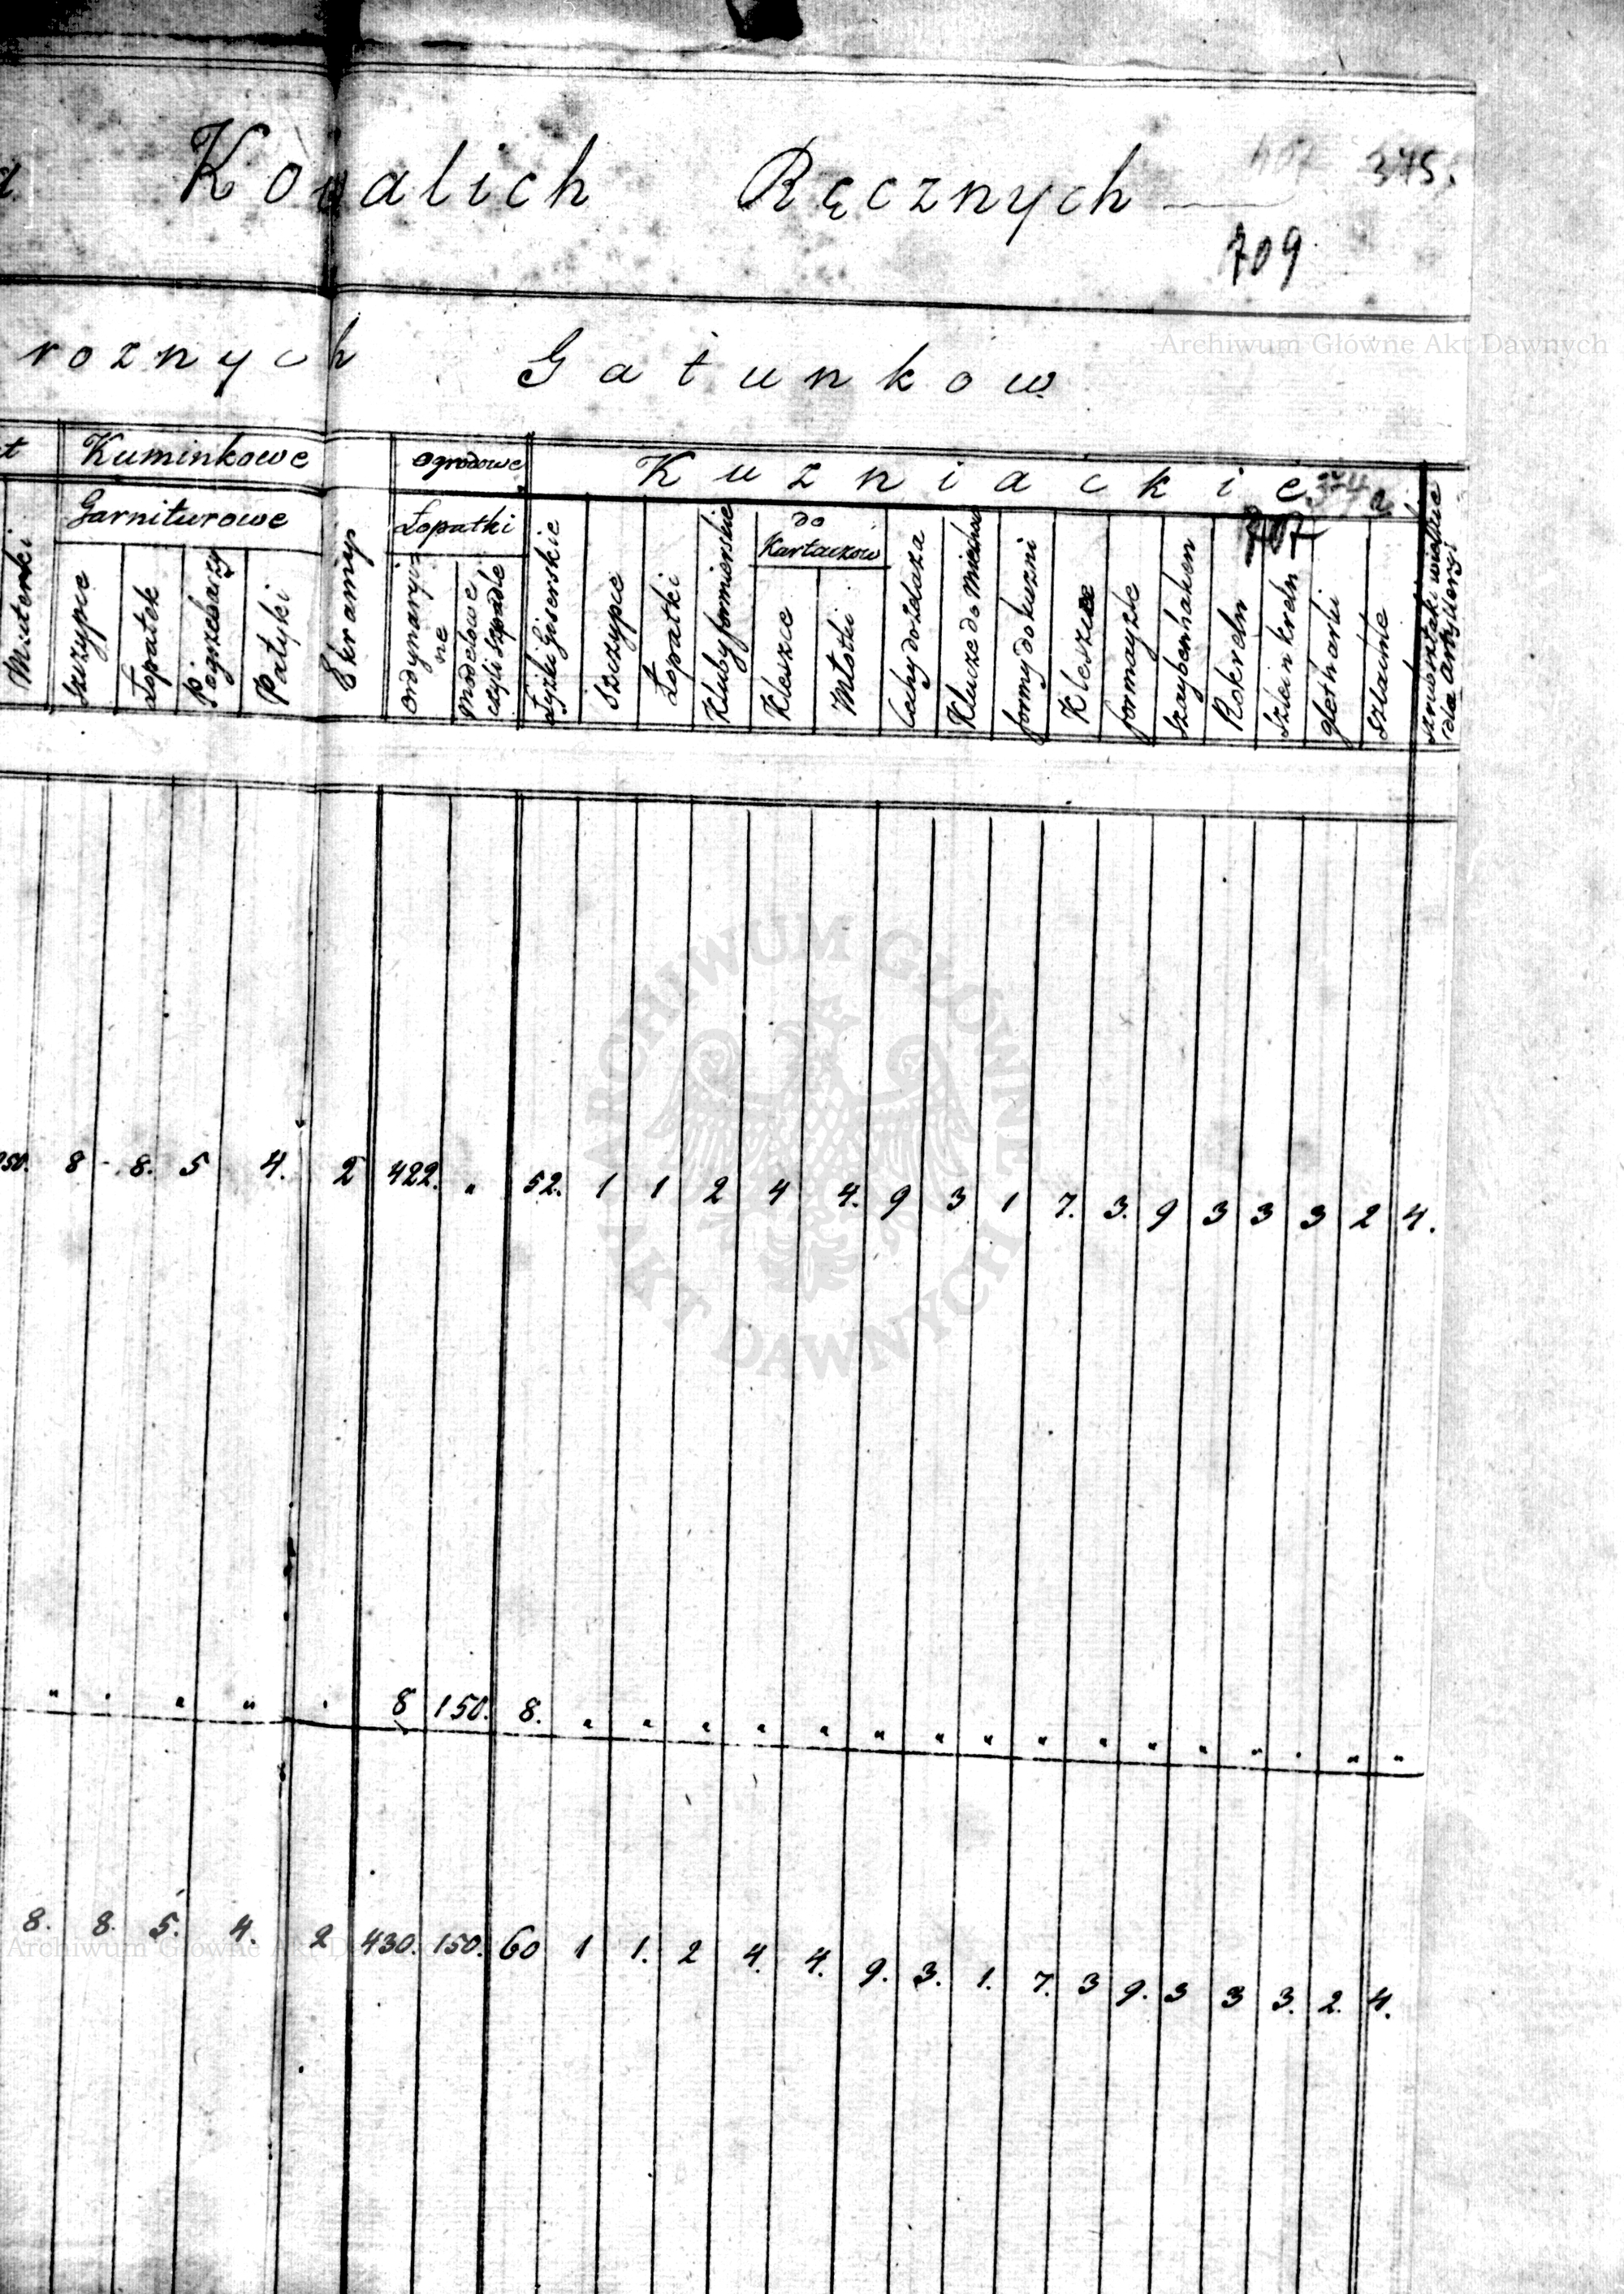 Kowalich Ręcznych
407 375.
709
roznych Gatunkow
Archiwum Główne Akt Dawnych
Kuminkowe ogrodowe Kuzniackie 374
Garniturowe Łopatki do Kartaczow 707
Muterki
szczypce
Łopatek
Pogrzebaczy
Patyki
Ekramy
ordynaryine
modelowe czyli szpadle
Łyżki Giserskie
Szczypce
Łopatki
Kluby formierskie
Kleszce
Młotki
Cechy do żelaza
Klucze do Miechow
formy do kuzni
Kleszcze
formayzle
Rokreln
szteinkreln
sztamle
szrubsztaki wielkie dla Artyllerij
250. 8 8. 5 4. 2 422. " 52. 1 1 2 4 4. 9 3 1 7. 3. 9 3 3 3 2 4.
ARCHIWUM GŁÓWNE AKT DAWNYCH
" . " " . 8 150. 8. " " " " " " " " " " " " " . " "
8. 8. 5. 4. 2 430. 150. 60 1 1. 2 4. 4. 9. 3. 1. 7. 3 9. 3 3 3. 2. 4.
Archiwum Główne Akt